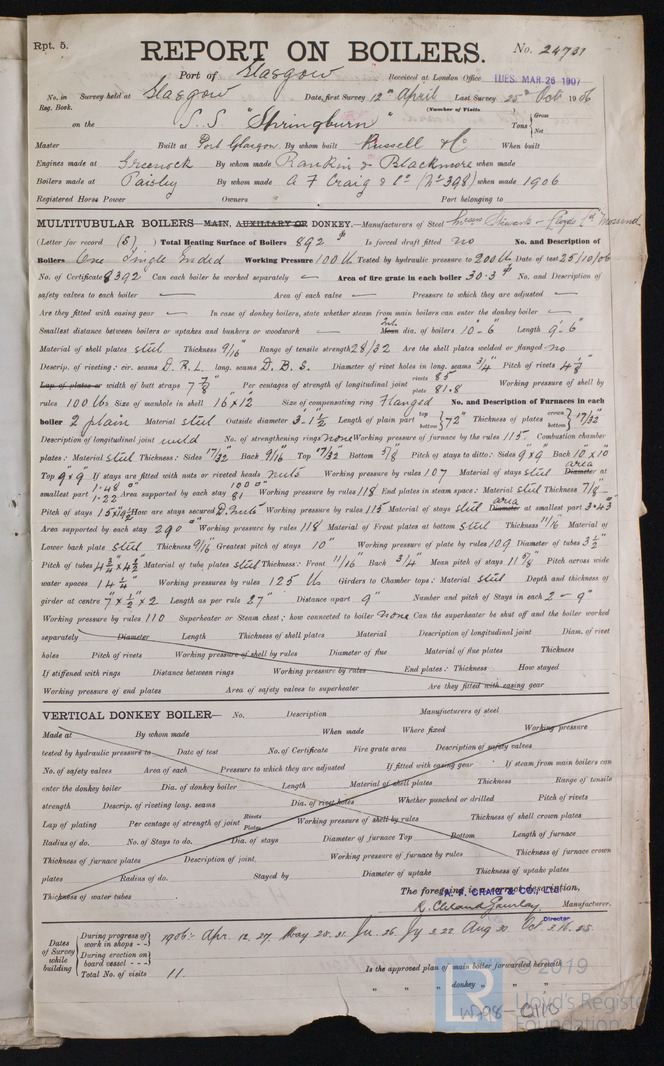 Rpt. 5.
REPORT ON BOILERS.
No. 24731
Port of Glasgow Received at London Office TUES. MAR. 26 1907
No. in Reg. Book. Survey held at Glasgow Date, first Survey 12th April Last Survey 25th Oct 1906
(Number of Visits
on the S.S. "Springburn" Tons { Gross Net
Master Built at Port Glasgow By whom built Russell & Co When built
Engines made at Greenock By whom made Rankin & Blackmore when made
Boilers made at Paisley By whom made A F Craig & Co (No 398) when made 1906
Registered Horse Power Owners Port belonging to
MULTITUBULAR BOILERS—MAIN, AUXILIARY OR DONKEY.—Manufacturers of Steel
(Letter for record (S) ) Total Heating Surface of Boilers 892 Is forced draft fitted no No. and Description of
Boilers One Single Ended Working Pressure 100 lb Tested by hydraulic pressure to 200 lb Date of test 25/10/06
No. of Certificate 9392 Can each boiler be worked separately Area of fire grate in each boiler 30.3 No. and Description of
safety valves to each boiler Area of each valve Pressure to which they are adjusted
Are they fitted with easing gear In case of donkey boilers, state whether steam from main boilers can enter the donkey boiler
Smallest distance between boilers or uptakes and bunkers or woodwork Mean dia. of boilers 10'-6" Length 9'-6"
Material of shell plates steel Thickness 9/16" Range of tensile strength 28/32 Are the shell plates welded or flanged no
Descrip. of riveting: cir. seams D.R.L. long. seams D.B.S. Diameter of rivet holes in long. seams 3/4" Pitch of rivets 4 1/8"
Lap of plates or width of butt straps 7 7/8" Per centages of strength of longitudinal joint rivets 85 plate 81.8 Working pressure of shell by
rules 100 lbs Size of manhole in shell 16" x 12" Size of compensating ring Flanged No. and Description of Furnaces in each
boiler 2 plain Material steel Outside diameter 3'-1 1/2" Length of plain part top bottom } 72" Thickness of plates crown bottom } 17/32"
Description of longitudinal joint weld No. of strengthening rings none Working pressure of furnace by the rules 115 Combustion chamber
plates: Material steel Thickness: Sides 17/32" Back 9/16" Top 17/32" Bottom 5/8" Pitch of stays to ditto: Sides 9 x 9" Back 10 x 10"
Top 9" x 9" If stays are fitted with nuts or riveted heads nuts Working pressure by rules 107 Material of stays steel Diameter area at
smallest part 1.48 1.22 Area supported by each stay 100 81 Working pressure by rules 118 End plates in steam space: Material steel Thickness 7/8"
Pitch of stays How are stays secured D. nuts Working pressure by rules 115 Material of stays steel Diameter area at smallest part
Area supported by each stay 290 Working pressure by rules 118 Material of Front plates at bottom steel Thickness 11/16" Material of
Lower back plate steel Thickness 9/16" Greatest pitch of stays 10" Working pressure of plate by rules 109 Diameter of tubes 3 1/2"
Pitch of tubes 4 3/4" x 4 1/2" Material of tube plates steel Thickness: Front 11/16" Back 3/4" Mean pitch of stays 11 5/8" Pitch across wide
water spaces 14 1/4" Working pressures by rules 125 lbs Girders to Chamber tops: Material steel Depth and thickness of
girder at centre 7" x 1/2" x 2 Length as per rule 27" Distance apart 9" Number and pitch of Stays in each 2 - 9"
Working pressure by rules 110 Superheater or Steam chest; how connected to boiler none Can the superheater be shut off and the boiler worked
separately Diameter Length Thickness of shell plates Material Description of longitudinal joint Diam. of rivet
holes Pitch of rivets Working pressure of shell by rules Diameter of flue Material of flue plates Thickness
If stiffened with rings Distance between rings Working pressure by rules End plates: Thickness How stayed
Working pressure of end plates Area of safety valves to superheater Are they fitted with easing gear
VERTICAL DONKEY BOILER— No. Description Manufacturers of steel
Made at By whom made When made Where fixed Working pressure
tested by hydraulic pressure to Date of test No. of Certificate Fire grate area Description of safety valves
No. of safety valves Area of each Pressure to which they are adjusted If fitted with easing gear If steam from main boilers can
enter the donkey boiler Dia. of donkey boiler Length Material of shell plates Thickness Range of tensile
strength Descrip. of riveting long. seams Dia. of rivet holes Whether punched or drilled Pitch of rivets
Lap of plating Per centage of strength of joint Rivets Plates Working pressure of shell by rules Thickness of shell crown plates
Radius of do. No. of Stays to do. Dia. of stays Diameter of furnace Top Bottom Length of furnace
Thickness of furnace plates Description of joint Working pressure of furnace by rules Thickness of furnace crown
plates Radius of do. Stayed by Diameter of uptake Thickness of uptake plates
Thickness of water tubes The foregoing is a correct description,
A. F. CRAIG & CO., LTD
R. Cleland Gourlay, Manufacturer.
Director
Dates of Survey while building
During progress of work in shops - - 1906:- Apr. 12. 27. May 20. 31. Ju. 26. Jy 3. 22. Aug 30. Oct. 2. 16. 25.
During erection on board vessel - - -
Total No. of visits 11.
Is the approved plan of main boiler forwarded herewith
" " " donkey " " "
© 2019
Lloyd's Register
Foundation
W798-0110